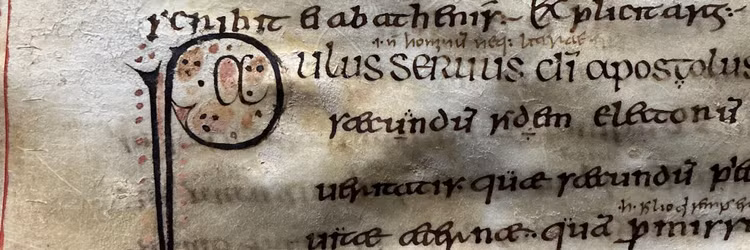 scribit e abathenis:- Explicit arg:-
.i. ñ hominū neq:
Paulus seruus dī apostolus
secundū fidem electorū
ueritatis quae secundū
uitae aeternae quā